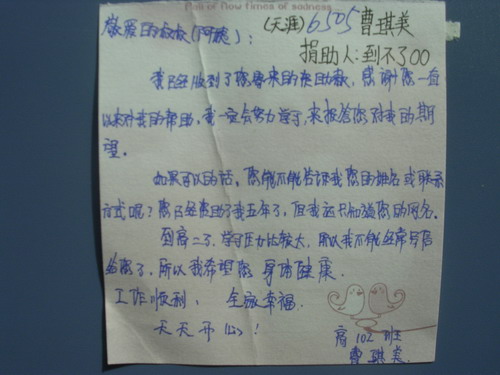 Pen of New times of sadness
敬爱的叔叔(阿姨):
(天涯)6505曹琪美
捐助人:到不了00
我已经收到了您寄来的资助款,感谢您一直
以来对我的帮助。我一定会努力学习,来报答您对我的期
望。
如果可以的话,您能不能告诉我您的姓名或联系
方式呢?您已经资助了我五年了,但我还只知道您的网名。
到高二了,学习压力比较大,所以我不能经常写信
给您了,所以我希望您 身体健康.
工作顺利, 全家幸福.
天天开心!
高102班
曹琪美.